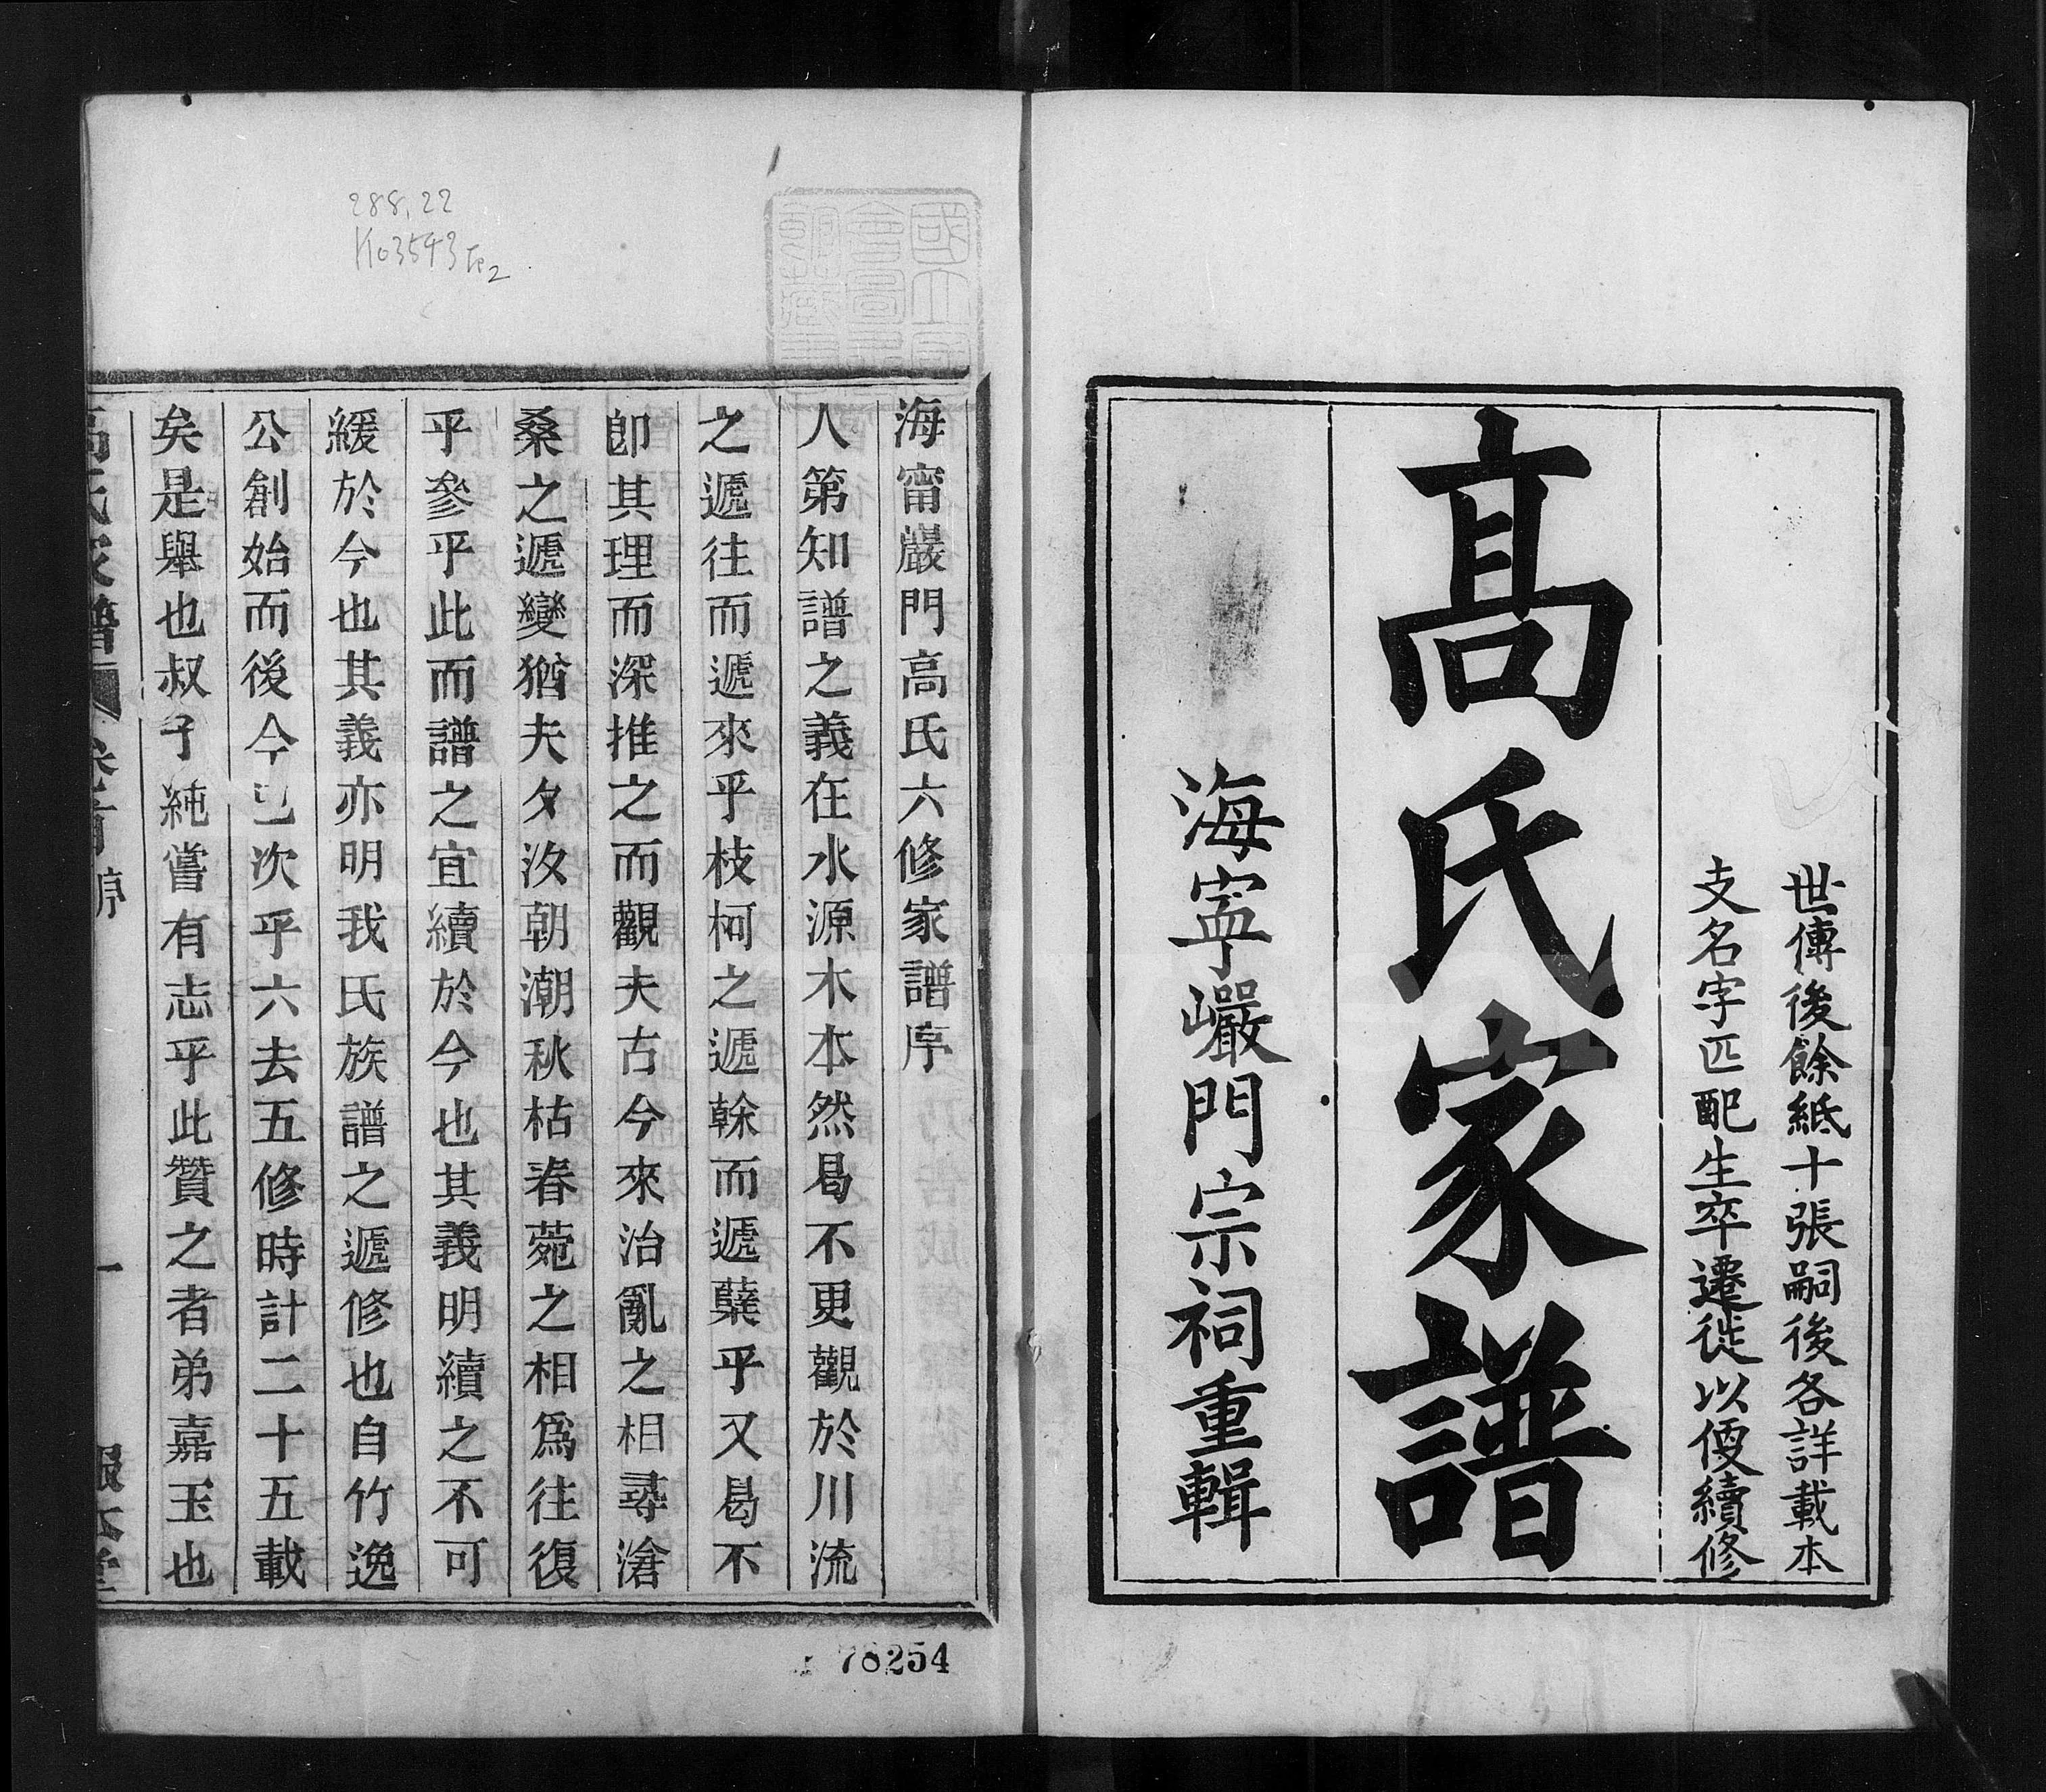 世傳後餘紙十張嗣後各詳載本
支名字匹配生卒遷徙以便續修
高氏家譜
海寧巖門宗祠重輯
海甯巖門高氏六修家譜序
人第知譜之義在水源木本然曷不更觀於川流
之遞往而遞來乎枝柯之遞榦而遞櫱乎又曷不
卽其理而深推之而觀夫古今來治亂之相尋滄
桑之遞變猶夫夕汐朝潮秋枯春菀之相爲往復
乎參乎此而譜之宜續於今也其義明續之不可
緩於今也其義亦明我氏族譜之遞修也自竹逸
公創始而後今已次乎六去五修時計二十五載
矣是舉也叔子純嘗有志乎此贊之者弟嘉玉也
高氏家譜 卷首 序 一 報本堂
288.22
K03543
78254